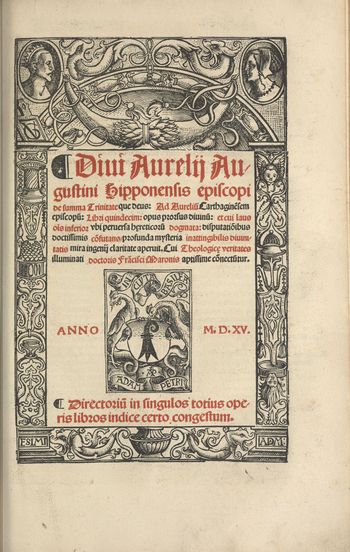 ¶ Diui Aurelij Au-
gustini Hipponensis episcopi
de summa Trinitate que deus: Ad Aureliū Carthaginēsem
episcopū: Libri quindecim: opus prorsus diuinū: et cui
vbi peruersa hereticorū dogmata: disputatiōibus
doctissimis cōfutans profunda mysteria inattingibilis diuini-
tatis mira ingenij claritate aperuit. Cui Theologice veritates
illuminati doctoris Frācisci Maronis aptissime cōnectūtur.
ANNO M. D. XV.
ADAM PETRI
¶ Directoriū in singulos totius ope-
ris libros indice certo congestum.